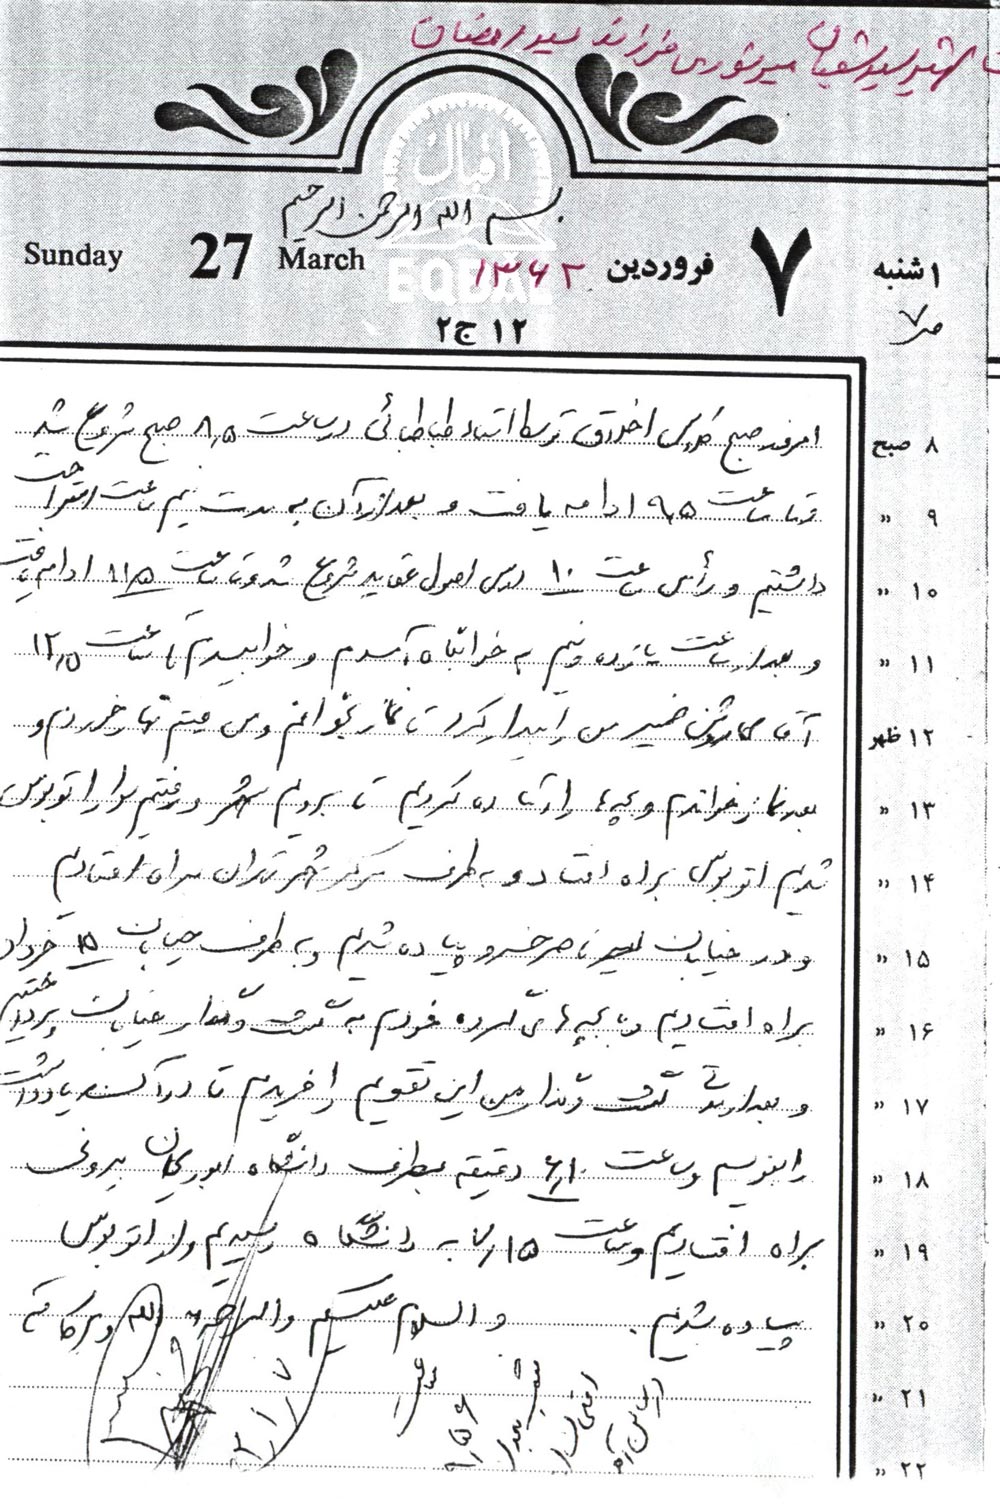 شهید سید شعبان میرشوری فرزاند سید رمضان
اقبال
EQBAL
بسم الله الرحمن الرحیم
Sunday 27 March ۱۳۶۲ فروردین ۷ ۱شنبه
۱۲ ج۲
۸ صبح امروز صبح کلاس اخلاق توسط استاد طباطبائی در ساعت ۸٫۵ صبح شروع شد
۹ » و تا ساعت ۹٫۵ ادامه یافت و بعد از آن به مدت نیم ساعت استراحت
۱۰ » داشتیم و رأس ساعت ۱۰ درس اصول عقاید شروع شد و تا ساعت ۱۱٫۵ ادامه یافت
۱۱ » و بعد از ساعت یازده و نیم به خوابگاه آمدم و خوابیدم تا ساعت ۱۲٫۵
۱۲ ظهر آقای روشن ضمیر من را بیدار کرد تا نماز بخوانم و من رفتم نهار خوردم و
۱۳ » بعد نماز خواندم و بچه‌ها را آماده کردیم تا برویم شهر و رفتیم سوار اتوبوس
۱۴ » شدیم اتوبوس براه افتاد و به طرف مرکز شهر تهران براه افتادیم
۱۵ » و در خیابان ناصر خسرو پیاده شدیم و به طرف خیابان ۱۵ خرداد
۱۶ » براه افتادیم و با بچه‌های گروه خودم به گشت و گذار خیابان پرداختیم
۱۷ » و بعد از مدتی گشت و گذار من این تقویم را خریدم تا در آن یادداشت
۱۸ » را بنویسم و ساعت ۶٫۱۰ دقیقه بطرف دانشگاه ابوریحان بیرونی
۱۹ » براه افتادیم و ساعت ۷٫۱۵ به دانشگاه رسیدیم و از اتوبوس
۲۰ » پیاده شدیم. والسلام علیکم و الرحمة الله و برکاته
۲۱ » ساعت
۲۲ » ۹٫۵۶